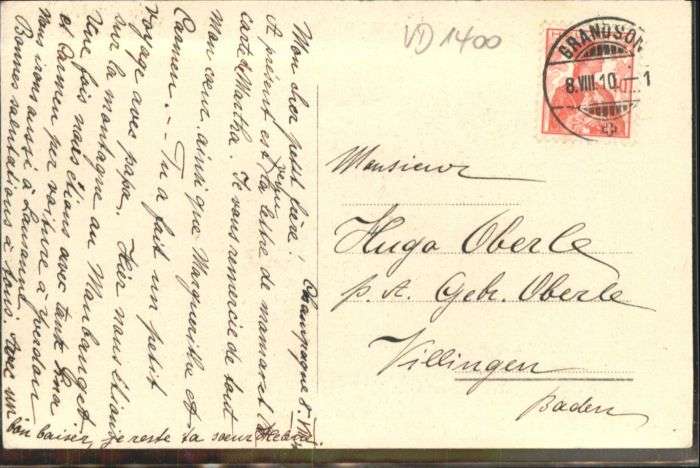 VD 1400
GRANDSON
8.VIII.10. 1
Monsieur
Hugo Oberle
p. A. Gebr. Oberle
Villingen
Baden
Champagne 8. VIII
Mon cher petit frère!
A présent est reçu la lettre de maman et la
carte d. Martha. Je vous remercie de tout
mon cœur ainsi que Marguerithe et
Carmen. -- Tu a fait un petit
voyage avec papa. Hier nous étions
sur la montagne au
Une fois nous étions avec tante
et Carmen par voiture à Yverdon
Nous irons aussi à Lausanne.
Bonnes salutations à tous. Avec un
bon baiser, je reste ta sœur